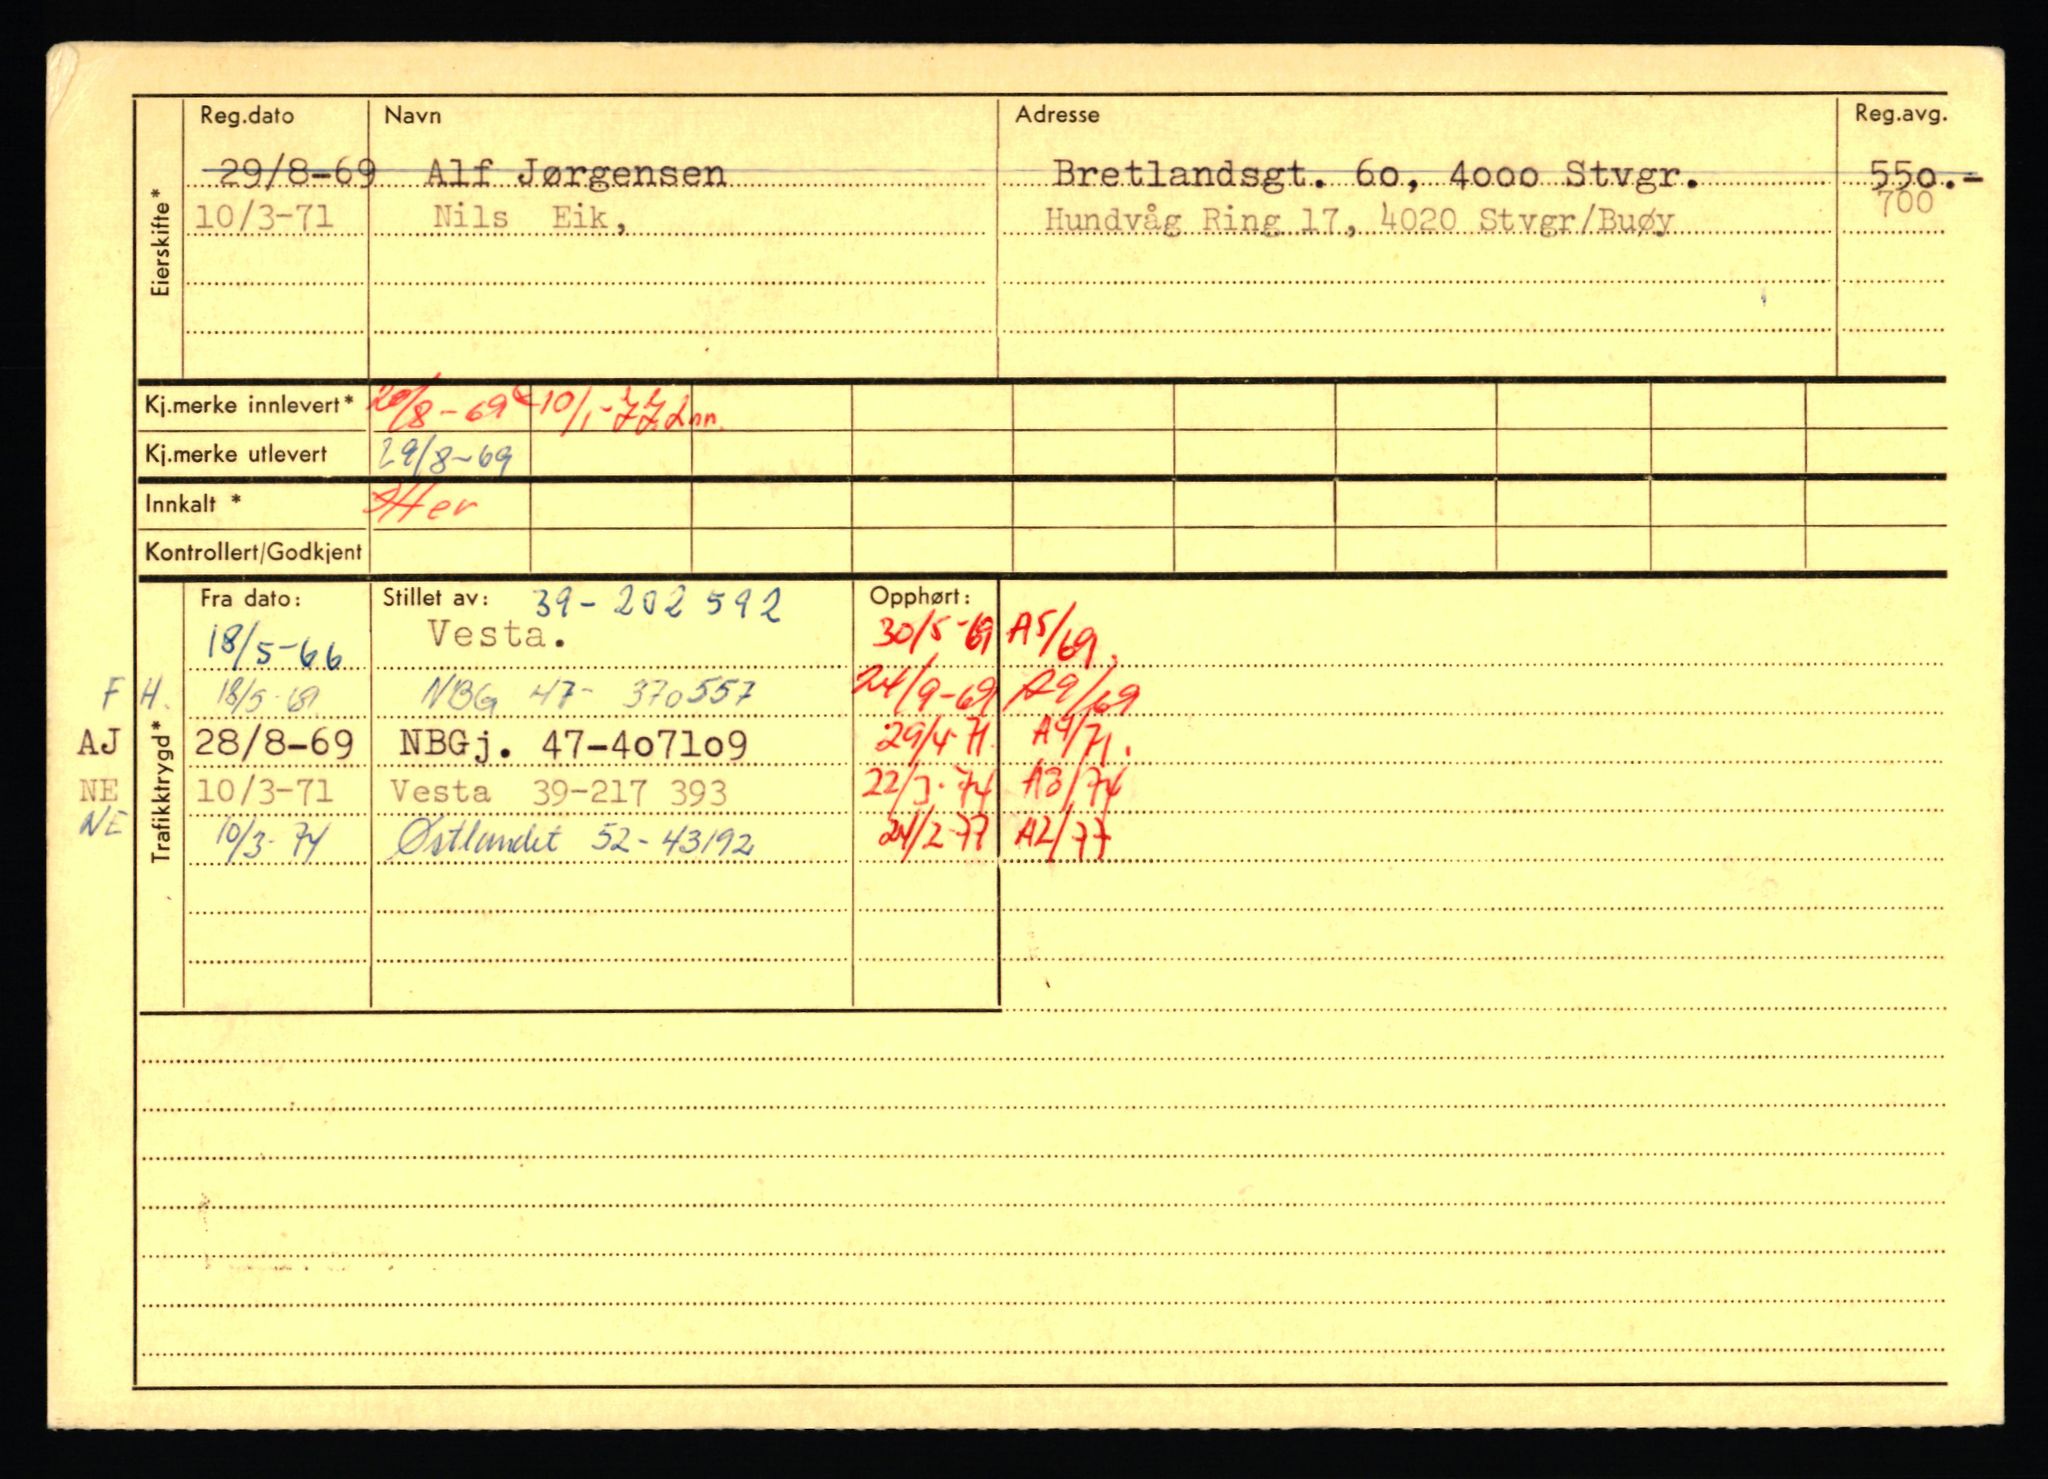 Reg.dato Navn Adresse Reg.avg.
29/8-69 Alf Jørgensen Bretlandsgt. 60, 4000 Stvgr. 550.-
10/3-71 Nils Eik, Hundvåg Ring 17, 4020 Stvgr/Buøy 700
Eierskifte*
Kj.merke innlevert* 20/8-69 10/1-77
Kj.merke utlevert 29/8-69
Innkalt *
Kontrollert/Godkjent
Fra dato: Stillet av: 39-202 592 Opphørt:
18/5-66 Vesta. 30/5-69 A5/69.
F H. 18/5-69 NBG 47- 370557 24/9-69 A9/69
AJ 28/8-69 NBGj. 47-407109 29/4-71. A4/71.
NE 10/3-71 Vesta 39-217 393 22/3-74 A3/74
NE 10/3-74 Østlandet 52-43192 24/2-77 A2/77
Trafikktrygd*